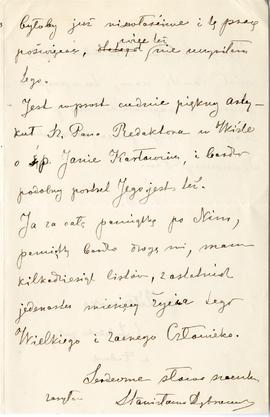 byłoby już niewłaściwe i tę pracę
poświęcać, więc też nie uczyniłem
tego.
Jest wprost cudnie piękny arty-
kuł Sz. Pana Redaktora w Wiśle
o śp. Janie Karłowiczu, i bardzo
podobny portret Jego jest też.
Ja za całą pamiątkę po Nim,
pamiątkę bardzo drogą mi, mam
kilkadziesiąt listów, z ostatnich
jedenastu miesięcy życia tego
Wielkiego i zacnego Człowieka.
Serdeczne słowa szacunku
zasyłam
Stanisława